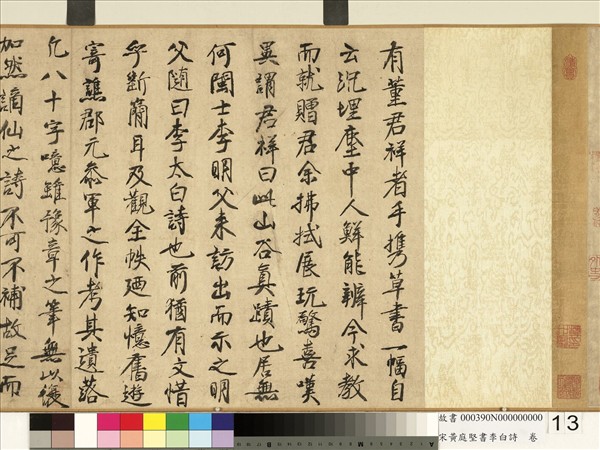 有董君祥者手攜草書一幅自
云沉埋塵中人鮮能辨今求教
而就贈君余拂拭展玩驚喜嘆
異謂君祥曰此山谷真蹟也居無
何閩士李明父來訪出而示之明
父隨曰李太白詩也前猶有文惜
乎斷簡耳及觀全帙廼知憶舊遊
寄譙郡元參軍之作考其遺落
凡八十字噫雖豫章之筆無以復
加然謫仙之詩不可不補故足而
故書 000390N000000000
宋黃庭堅書李白詩 卷
13